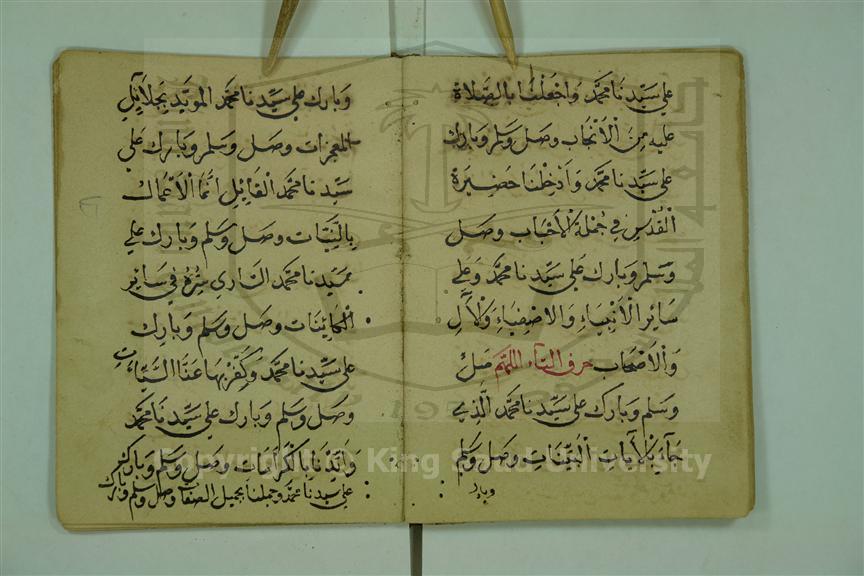 على سيدنا محمد واجعلنا بالصلاة
عليه من الأنجاب وصل وسلم وبارك
على سيدنا محمد وادخلنا حضيرة
القدس في جملة الأحباب وصل
وسلم وبارك على سيدنا محمد وعلى
سائر الأنبياء والأصفياء والآل
والأصحاب حرف التاء اللهم صل
وسلم وبارك على سيدنا محمد الذي
جاء بالآيات البينات وصل وسلم
وبارك
وبارك على سيدنا محمد المؤيد بجلائل
المعجزات وصل وسلم وبارك على
سيدنا محمد القائل انما الأعمال
بالنيات وصل وسلم وبارك على
سيدنا محمد الساري سره في سائر
الكائنات وصل وسلم وبارك
على سيدنا محمد وكفر بها عنا السيئات
وصل وسلم وبارك على سيدنا محمد
وأيدنا بالكرامات وصل وسلم وبارك
على سيدنا محمد وجملنا بجميل الصفات وصل وسلم وبارك
Copyright © King Saud University
1957